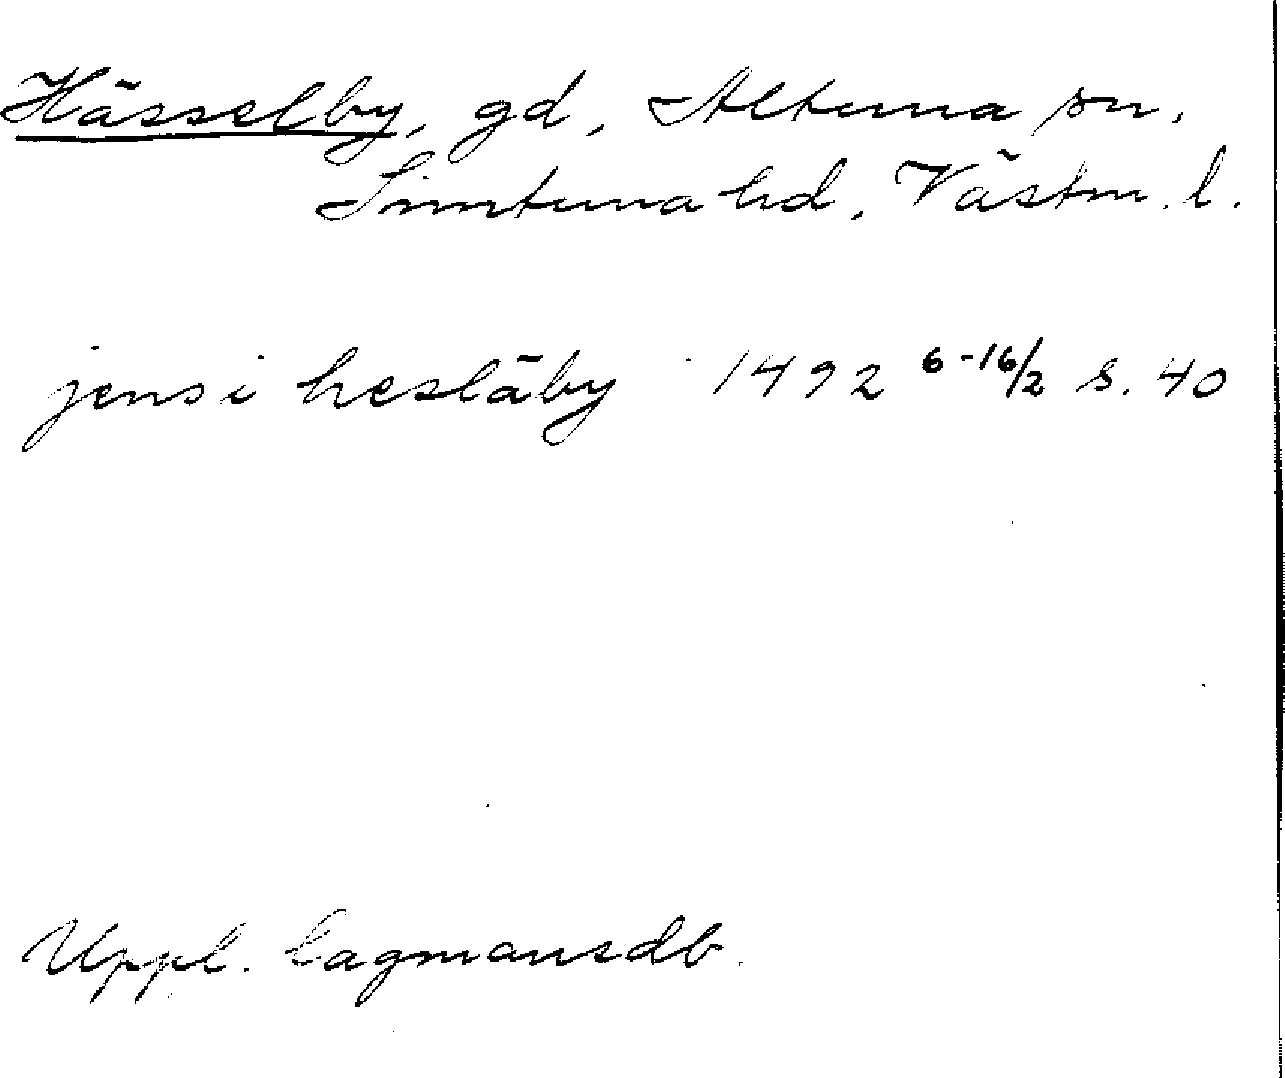 Hässelby, gd, Altuna sn,
Simtuna hd, Västm. l.
jens i hesläby 1492 6-16/2 s. 40
Uppl. lagmansdb.